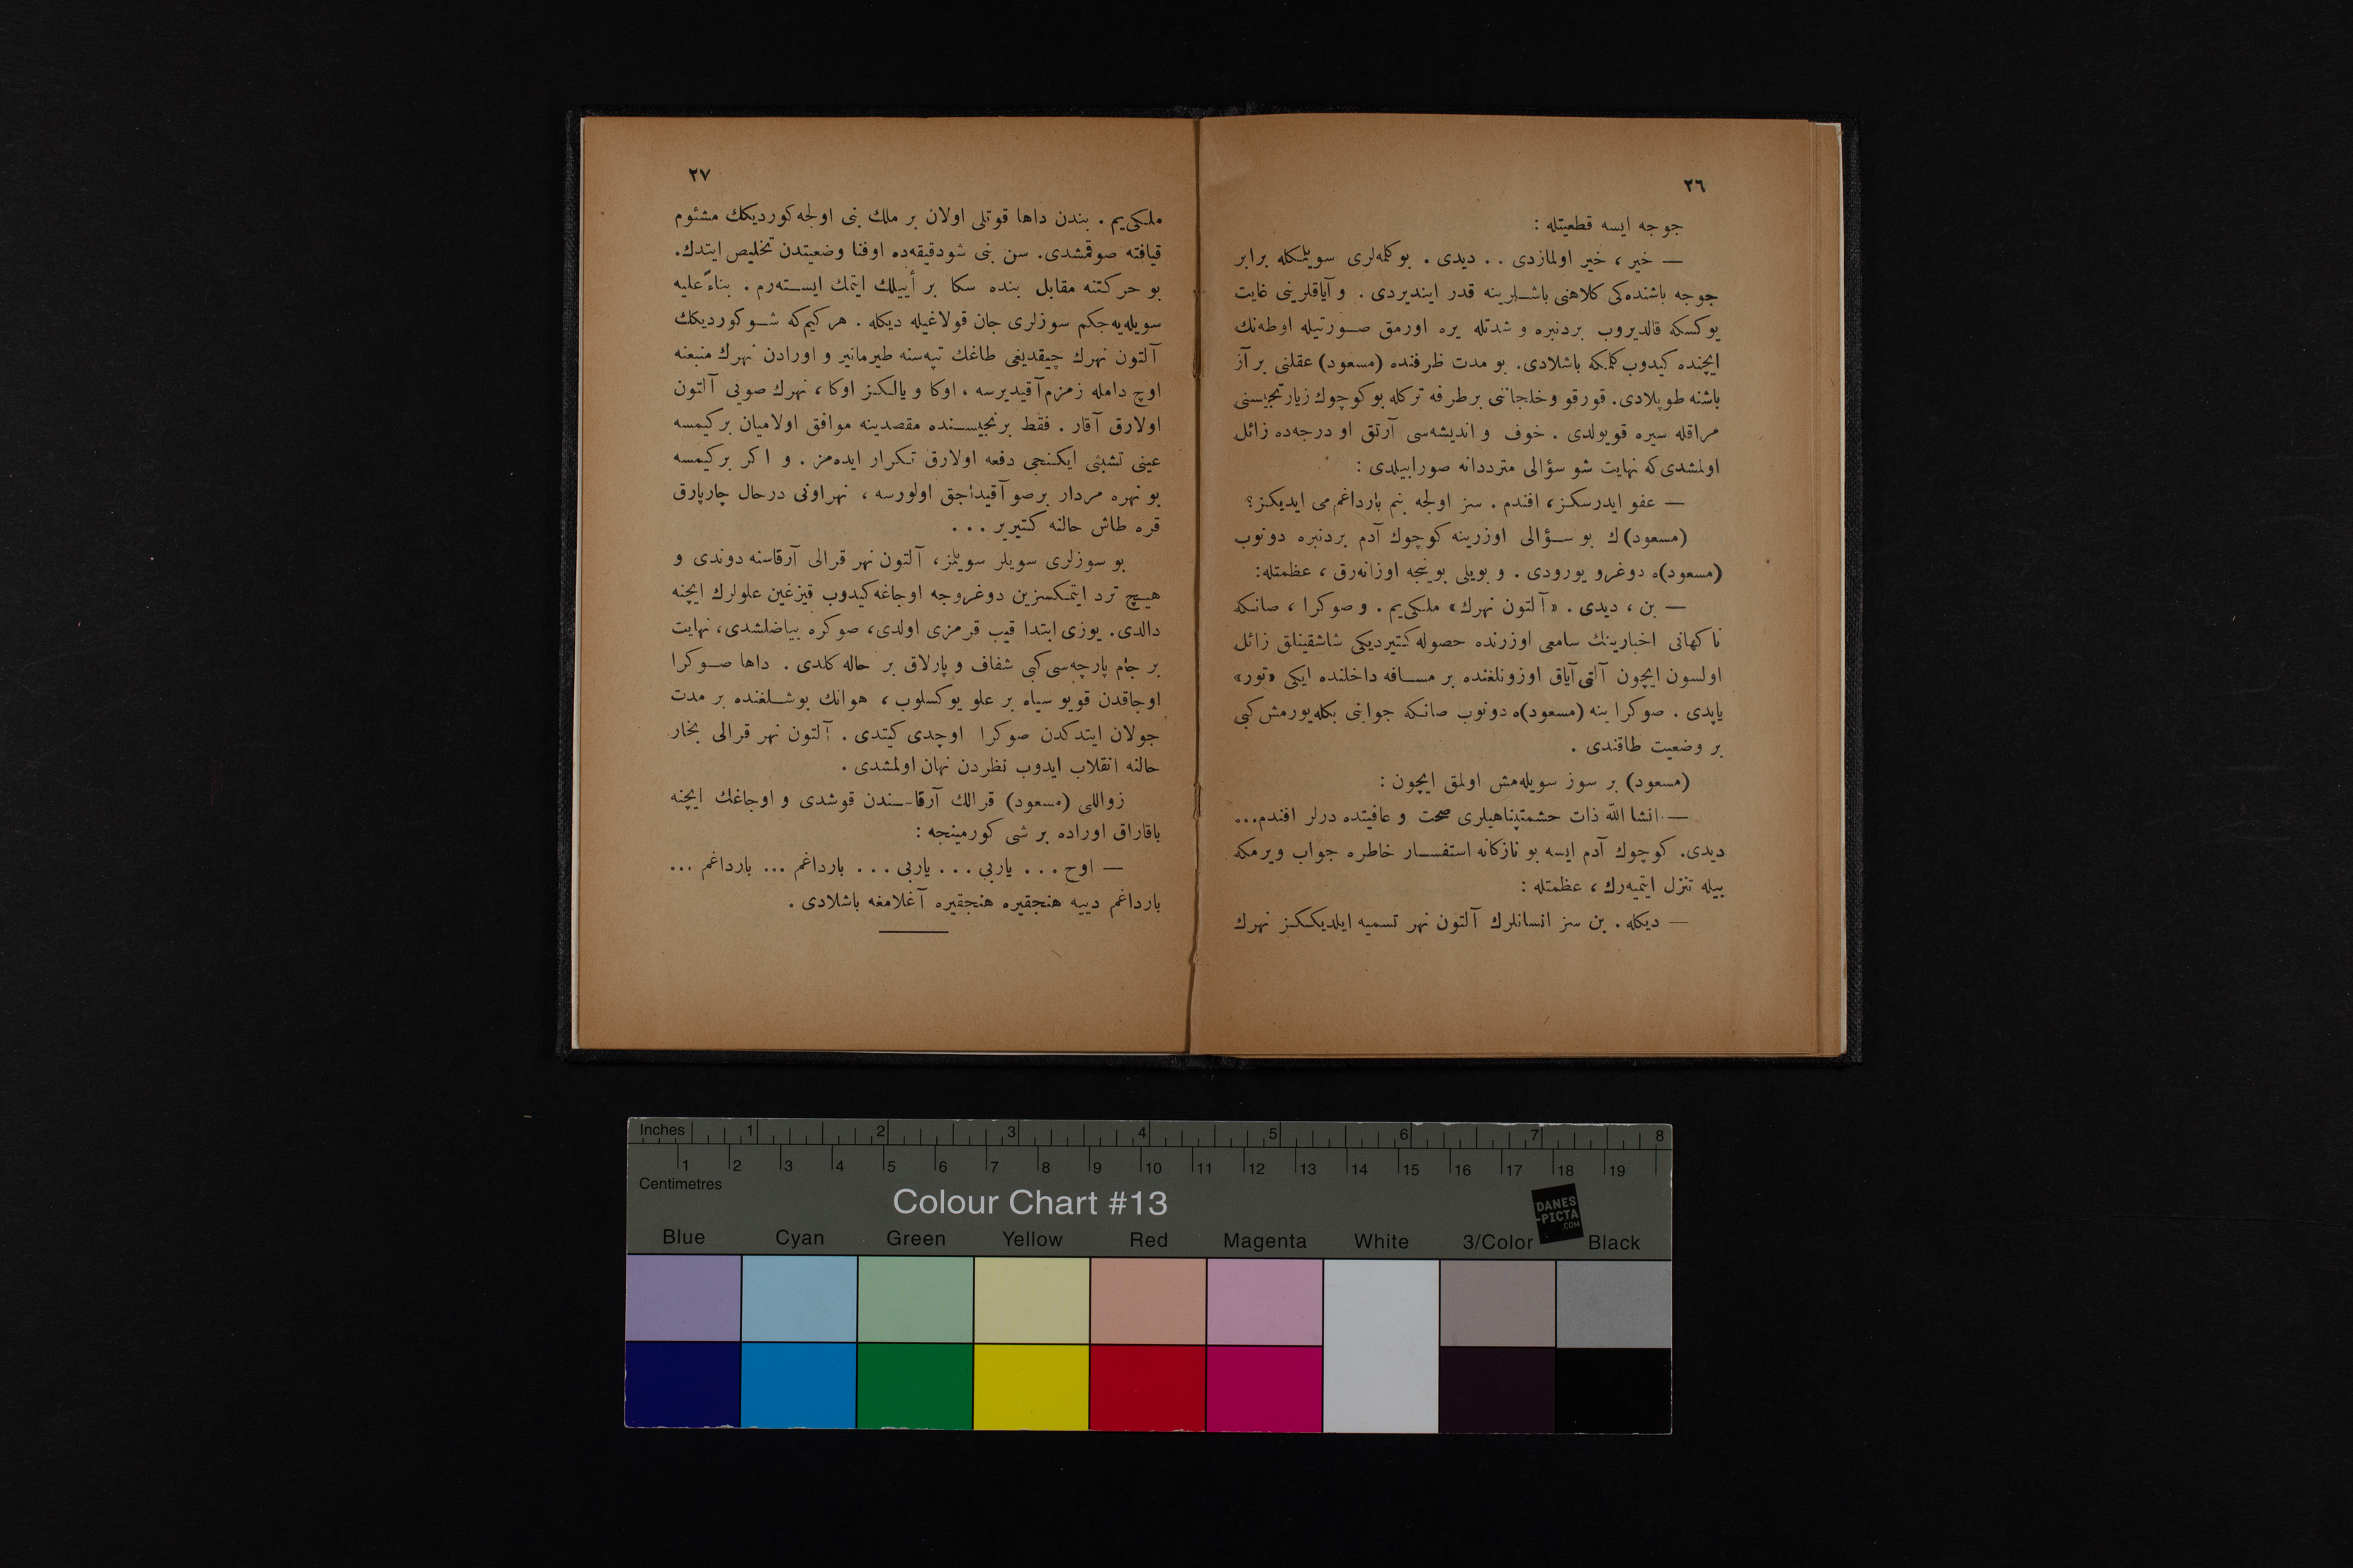 ٢٦
جوجه ايسه قطعيتله :
— خير ، خير اولمازدى . . ديدى . بو كلمه‌لرى سويلمكله برابر
جوجه باشنده‌كى كلاهنى باشلرينه قدر اينديردى . و آياقلرينى غايت
يوكسكه قالديروب بردنبره و شدتله يره اورمق صورتيله اوطه‌نك
ايچنده كيدوب كلمكه باشلادى. بو مدت ظرفنده (مسعود) عقلنى بر آز
باشنه طوپلادى. قورقو و خلجاننى برطرفه تركله بو كوچوك زيارتجيسنى
مراقله سيره قويولدى . خوف و انديشه‌سى آرتق او درجه‌ده زائل
اولمشدى كه نهايت شو سؤالى مترددانه صورابيلدى :
— عفو ايدرسكز، افندم . سز اولجه بنم بارداغم مى ايديكز؟
(مسعود) ك بو سؤالى اوزرينه كوچوك آدم بردنبره دونوب
(مسعود)ه دوغرو يورودى . و بويلى بوينجه اوزانه‌رق ، عظمتله:
— بن ، ديدى . «آلتون نهرك» ملكى‌يم . و صوكرا ، صانكه
ناكهانى اخبارينك سامعى اوزرنده حصوله كتيرديكى شاشقينلق زائل
اولسون ايچون آلتى آياق اوزونلغنده بر مسافه داخلنده ايكى «تور»
ياپدى . صوكرا ينه (مسعود)ه دونوب صانكه جوابنى بكله‌يورمش كبى
بر وضعيت طاقندى .
(مسعود) بر سوز سويله‌مش اولمق ايچون :
— انشا الله ذات حشمتپناهيلرى صحت و عافيتده درلر افندم...
ديدى. كوچوك آدم ايسه بو نازكانه استفسار خاطره جواب ويرمكه
بيله تنزل ايتميه‌رك ، عظمتله :
— ديكله . بن سز انسانلرك آلتون نهر تسميه ايلديككز نهرك
٢٧
ملكى‌يم . بندن داها قوتلى اولان بر ملك بنى اولجه كورديكك مشئوم
قيافته صوقمشدى. سن بنى شو دقيقه‌ده او فنا وضعيتدن تخليص ايتدك.
بو حركتنه مقابل بنده سكا بر أييلك ايتمك ايسته‌رم . بناءً عليه
سويله‌يه‌جكم سوزلرى جان قولاغيله ديكله . هر كيم كه شو كورديكك
آلتون نهرك چيقديغى طاغك تپه‌سنه طيرمانير و اورادن نهرك منبعنه
اوچ دامله زمزم آقيديرسه ، اوكا و يالكز اوكا ، نهرك صويى آلتون
اولارق آقار . فقط برنجيسنده مقصدينه موافق اولاميان بر كيمسه
عينى تشبثى ايكنجى دفعه اولارق تكرار ايده‌مز . و اكر بر كيمسه
بو نهره مردار بر صو آقيداجق اولورسه ، نهر اونى درحال چارپارق
قره طاش حالنه كتيرير ...
بو سوزلرى سويلر سويلمز، آلتون نهر قرالى آرقاسنه دوندى و
هيچ ترد ايتمكسزين دوغروجه اوجاغه كيدوب قيزغين علولرك ايچنه
دالدى. يوزى ابتدا قيب قرمزى اولدى، صوكره بياضلشدى، نهايت
بر جام پارچه‌سى كبى شفاف و پارلاق بر حاله كلدى . داها صوكرا
اوجاقدن قويو سياه بر علو يوكسلوب ، هوانك بوشلغنده بر مدت
جولان ايتدكدن صوكرا اوچدى كيتدى . آلتون نهر قرالى بخار
حالنه انقلاب ايدوب نظردن نهان اولمشدى .
زواللى (مسعود) قرالك آرقاسندن قوشدى و اوجاغك ايچنه
باقاراق اوراده بر شى كورمينجه :
— اوح . . . ياربى . . . ياربى . . . بارداغم ... بارداغم ...
بارداغم دييه هنجقيره هنجقيره آغلامغه باشلادى .
Inches 1 2 3 4 5 6 7 8
1 2 3 4 5 6 7 8 9 10 11 12 13 14 15 16 17 18 19
Centimetres
Colour Chart #13
DANES
-PICTA
.COM
Blue Cyan Green Yellow Red Magenta White 3/Color Black